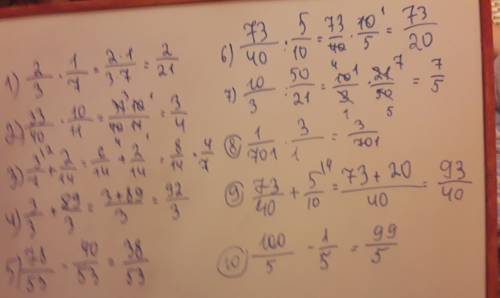 1) 2/3 · 1/7 = 2·1/3·7 = 2/21
2) 33/40 · 10/11 = 33·10/40·11 = 3/4
3) 3/7 + 2/14 = 6/14 + 2/14 = 8/14 = 4/7
4) 3/3 + 89/3 = 3+89/3 = 92/3
5) 78/53 - 40/53 = 38/53
6) 73/40 : 5/10 = 73/40 · 10/5 = 73/20
7) 10/3 : 50/21 = 10/3 · 21/50 = 7/5
8) 1/701 · 3/1 = 3/701
9) 73/40 + 5/10 = 73+20/40 = 93/40
10) 100/5 - 1/5 = 99/5